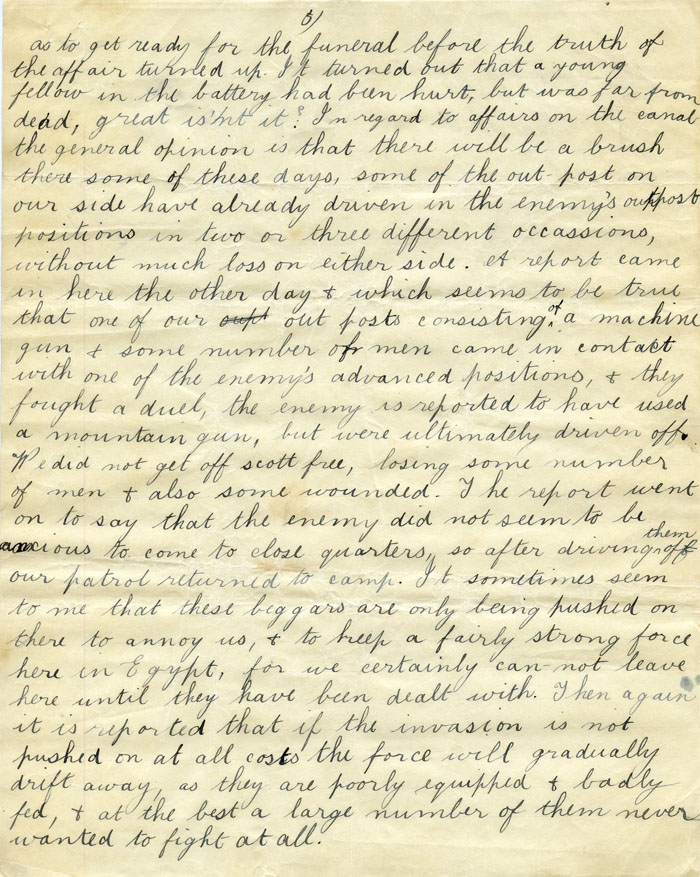 5)
as to get ready for the funeral before the truth of
the affair turned up. It turned out that a young
fellow in the battery had been hurt, but was far from
dead, great is'nt it? In regard to affairs on the canal
the general opinion is that there will be a brush
there some of these days, some of the out-post on
our side have already driven in the enemy's outpost
positions in two or three different occassions,
without much loss on either side. A report came
in here the other day & which seems to be true
that one of our out posts consisting of a machine
gun & some number of men came in contact
with one of the enemy's advanced positions, & they
fought a duel, the enemy is reported to have used
a mountain gun, but were ultimately driven off.
We did not get off scott free, losing some number
of men & also some wounded. The report went
on to say that the enemy did not seem to be
anxious to come to close quarters, so after driving them off
our patrol returned to camp. It sometimes seem
to me that these beggars are only being pushed on
there to annoy us, & to keep a fairly strong force
here in Egypt, for we certainly can-not leave
here until they have been dealt with. Then again
it is reported that if the invasion is not
pushed on at all costs the force will gradually
drift away, as they are poorly equipped & badly
fed, & at the best a large number of them never
wanted to fight at all.